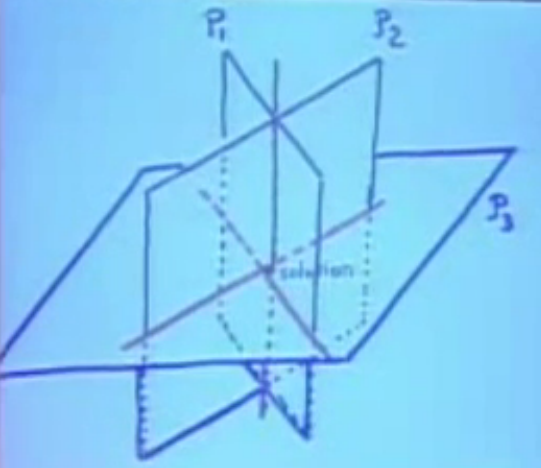 P₁
P₂
P₃
solution